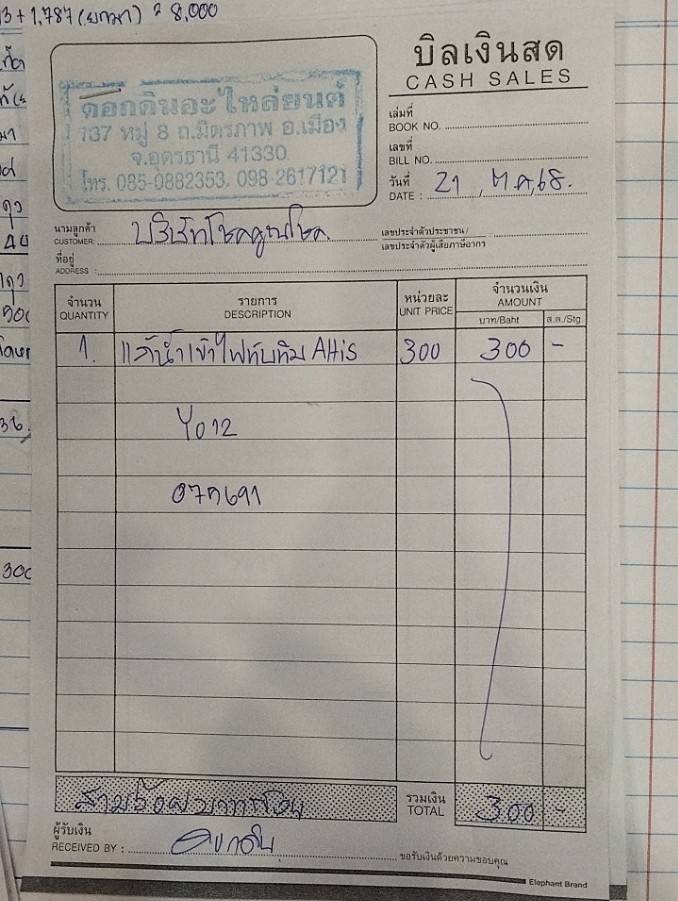 3 + 1,787 (ยกมา) = 8,000
บิลเงินสด
CASH SALES
ดอกดินอะไหล่ยนต์
137 หมู่ 8 ถ.มิตรภาพ อ.เมือง
จ.อุดรธานี 41330
โทร. 085-0882353, 098-2617121
เล่มที่
BOOK NO.
เลขที่
BILL NO.
วันที่
DATE : 21 ต.ค. 68.
นามลูกค้า
CUSTOMER: บริษัทโชคคูณโชค
เลขประจำตัวประชาชน /
เลขประจำตัวผู้เสียภาษีอากร :
ที่อยู่
ADDRESS :
จำนวน QUANTITY รายการ DESCRIPTION หน่วยละ UNIT PRICE จำนวนเงิน AMOUNT
บาท/Baht ส.ต./Stg.
1. ไฟทับทิม 300 300 -
Y012
รวมเงิน
TOTAL 300 -
ผู้รับเงิน
RECEIVED BY :
ขอรับเงินด้วยความขอบคุณ
Elephant Brand